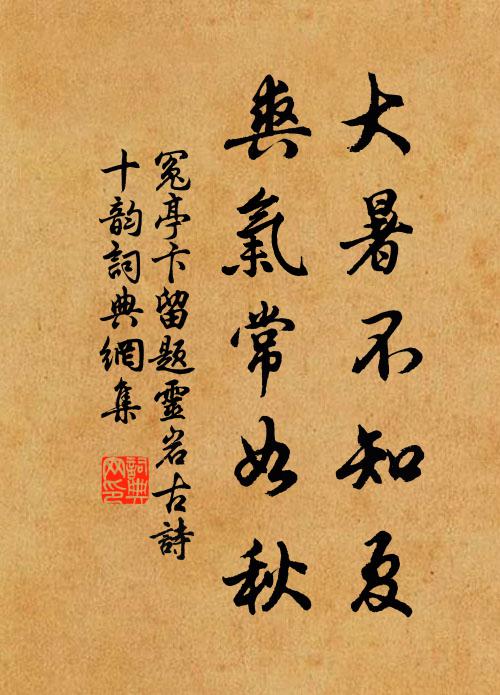 大暑不知夏
爽氣常如秋
冤亭卞留題靈岩古詩
十韵詞典網集
詞典网印